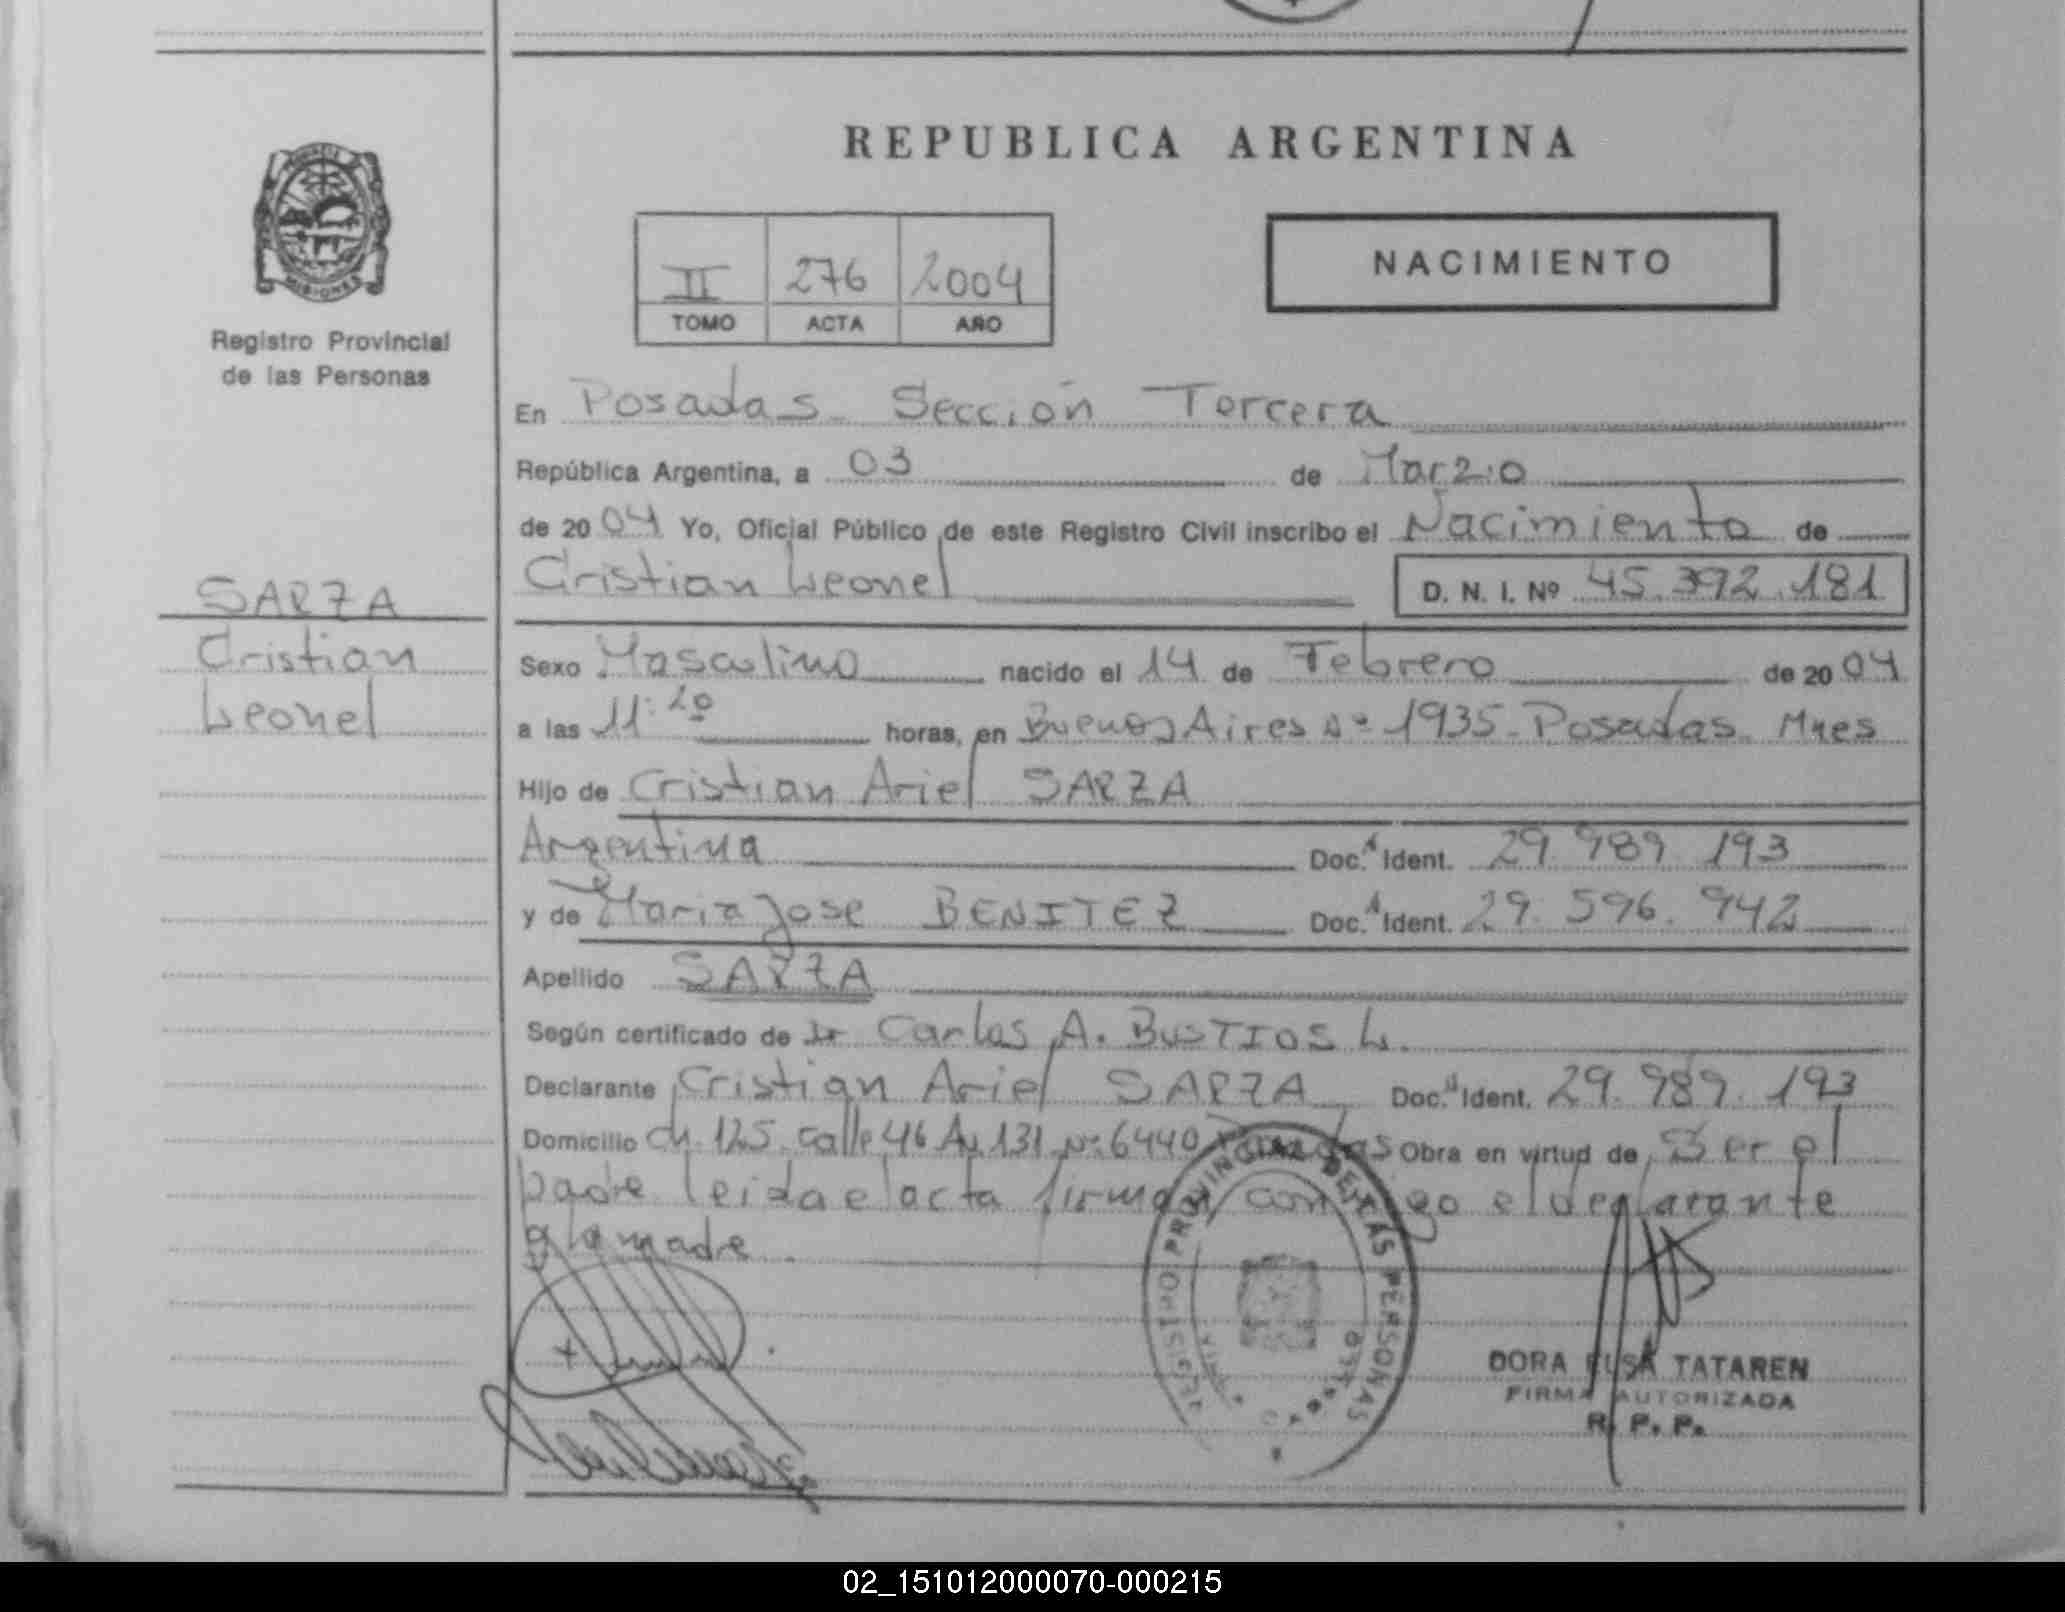 REPUBLICA ARGENTINA
MISIONES
Registro Provincial
de las Personas
II 276 2004
TOMO ACTA AÑO
NACIMIENTO
En Posadas Sección Tercera
República Argentina, a 03 de Marzo
de 20 04 Yo, Oficial Público de este Registro Civil inscribo el Nacimiento de
Cristian Leonel D. N. I. Nº 45.392.181
SARZA
Cristian
Leonel
Sexo Masculino nacido el 14 de Febrero de 20 04
a las 11:20 horas, en Buenos Aires Nº 1935 Posadas Mnes
Hijo de Cristian Ariel SARZA
Argentina Doc. Ident. 29.989.193
y de Maria Jose BENITEZ Doc. Ident. 29.596.942
Apellido SARZA
Según certificado de Dr Carlos A. BUSTIOS L.
Declarante Cristian Ariel SARZA Doc. Ident. 29.989.193
Domicilio Ch. 125 calle 46 Av 131 Nº 6440 Posadas Obra en virtud de Ser el
padre leida el acta firman conmigo el declarante
y la madre
REGISTRO PROVINCIAL DE LAS PERSONAS
DORA ELSA TATAREN
FIRMA AUTORIZADA
R. P. P.
02_151012000070-000215